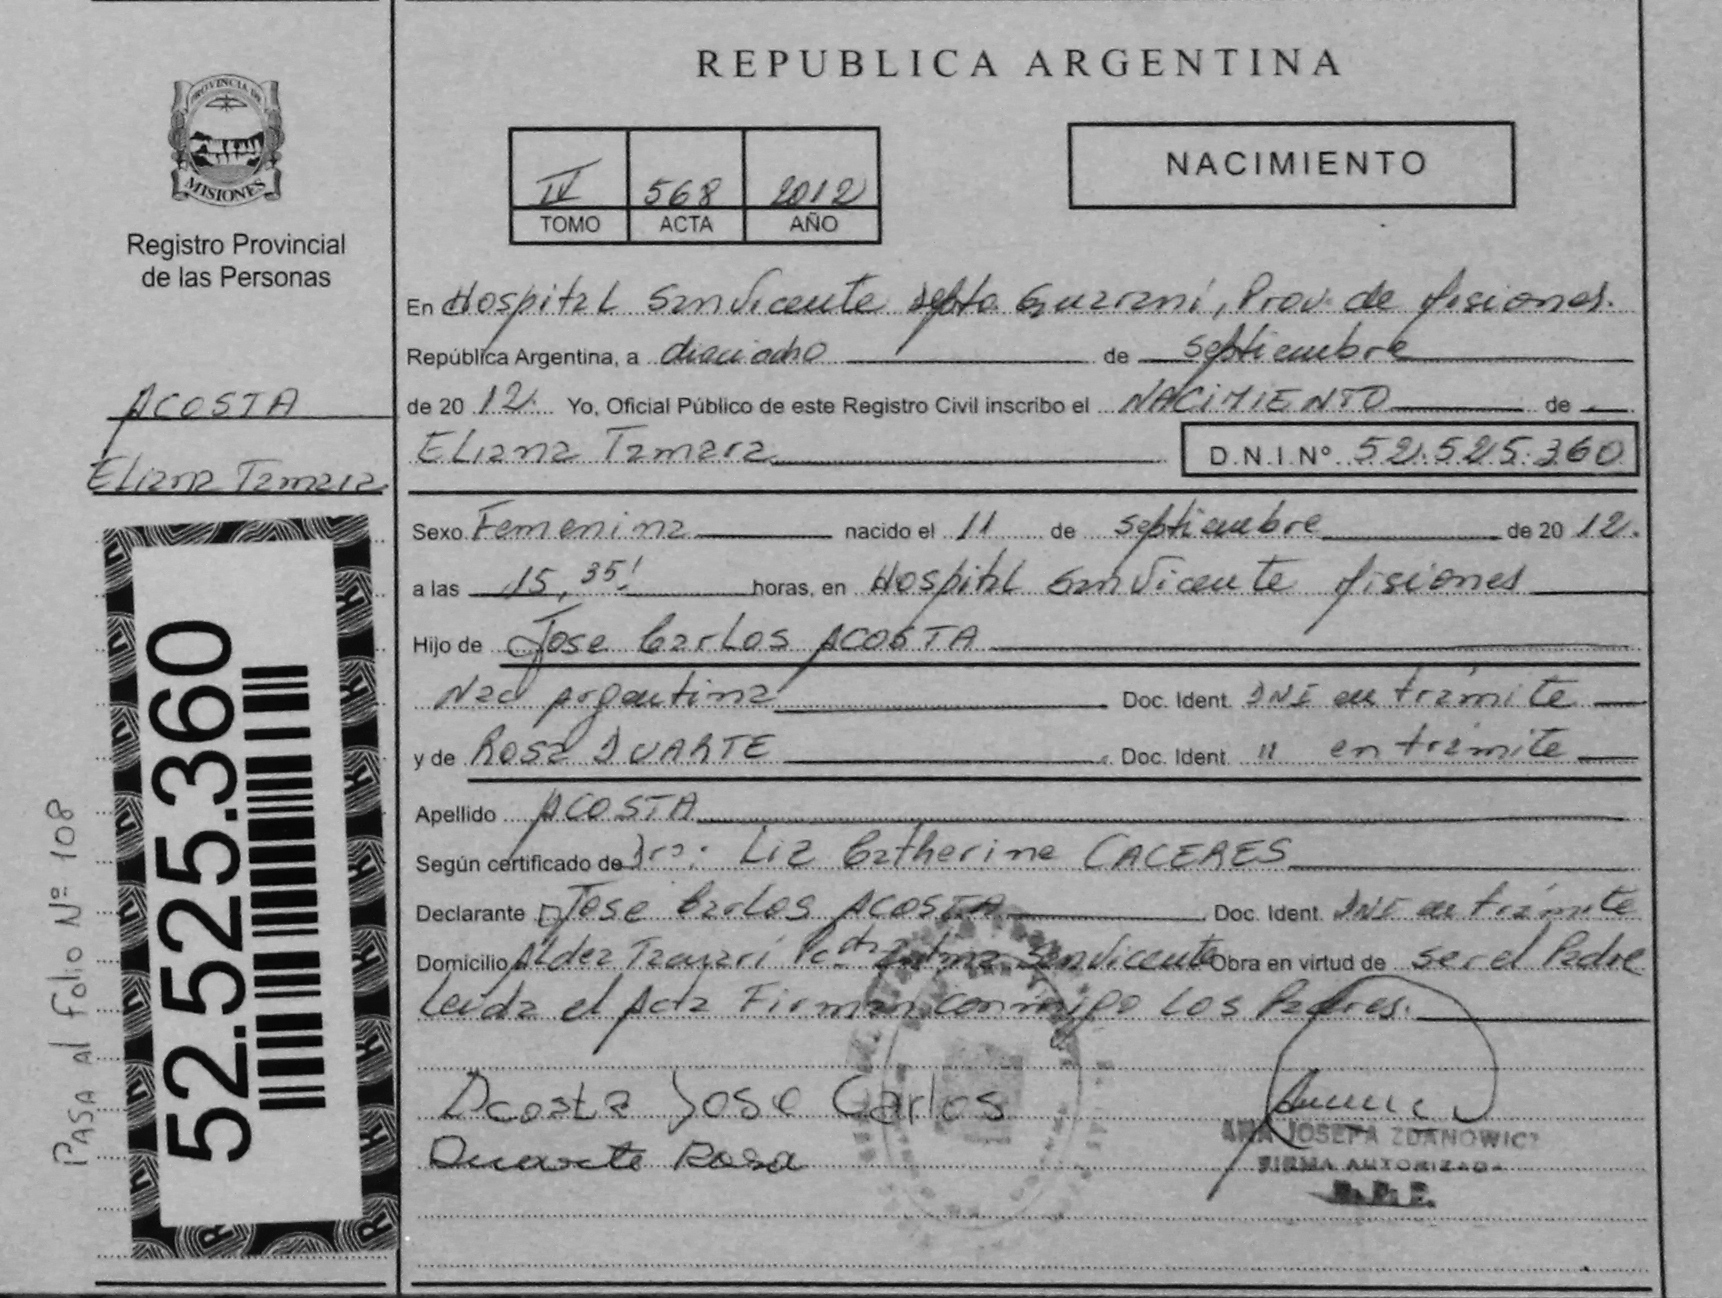 REPUBLICA ARGENTINA
PROVINCIA DE
MISIONES
Registro Provincial
de las Personas
IV 568 2012
TOMO ACTA AÑO
NACIMIENTO
ACOSTA
Eliana Tamara
52.525.360
PASA al Folio Nº 108
En Hospital San Vicente Depto. Guaraní, Prov. de Misiones.
República Argentina, a dieciocho de septiembre
de 20 12. Yo, Oficial Público de este Registro Civil inscribo el NACIMIENTO de
Eliana Tamara D.N.I.Nº 52.525.360
Sexo Femenina nacido el 11 de septiembre de 20 12.
a las 15,35' horas, en Hospital San Vicente Misiones
Hijo de Jose Carlos ACOSTA
Nac Argentina Doc. Ident. DNI en trámite
y de Rosa DUARTE Doc. Ident. " en trámite
Apellido ACOSTA
Según certificado de Dra: Liz Catherine CACERES
Declarante Jose Carlos ACOSTA Doc. Ident. DNI en trámite
Domicilio Aldea San Vicente Obra en virtud de ser el Padre
Leída el Acta Firman conmigo Los Padres.
Acosta Jose Carlos
Duarte Rosa
ANA JOSEFA ZDANOWICZ
FIRMA AUTORIZADA
R.P.P.